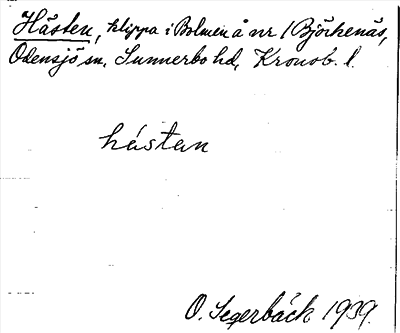 Hästen, klippa i Bolmen å nr 1 Björkenäs,
Odensjö sn, Sunnerbo hd, Kronob. l.
hástan
O. Segerbäck 1939.